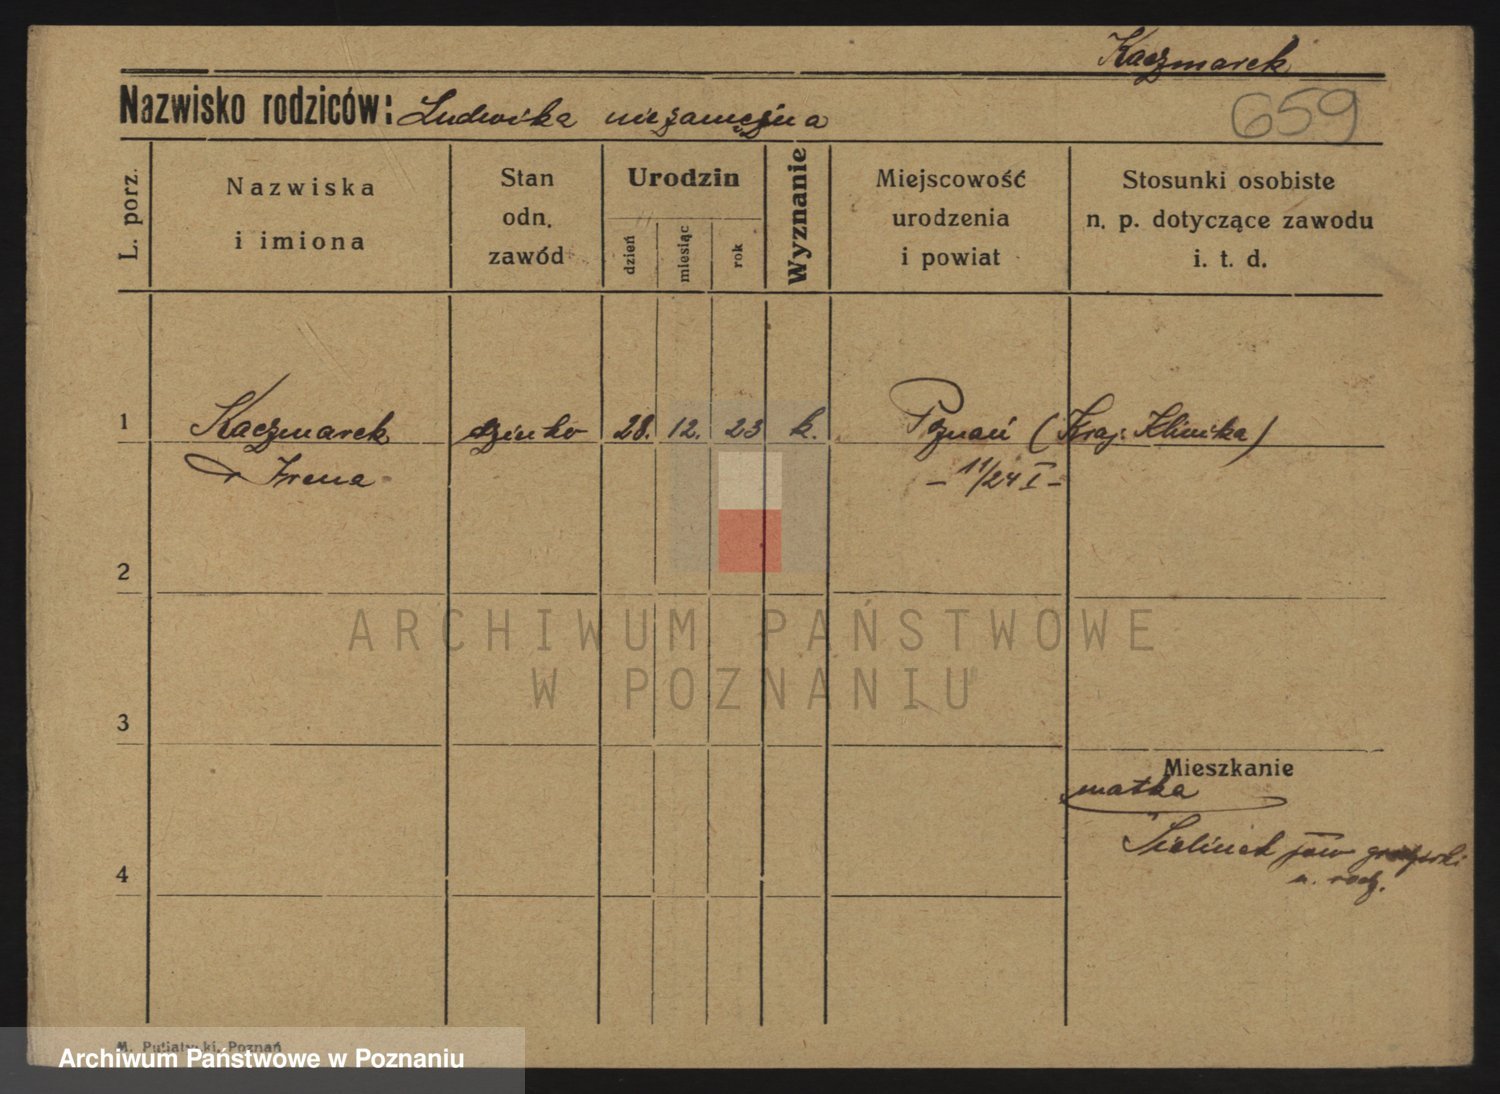 Kaczmarek
Nazwisko rodziców: Ludwika niezamężna
659
L. porz.
Nazwiska
i imiona
Stan
odn.
zawód
Urodzin
dzień
miesiąc
rok
Wyznanie
Miejscowość
urodzenia
i powiat
Stosunki osobiste
n. p. dotyczące zawodu
i. t. d.
1 Kaczmarek dziecko 28. 12. 23 k. Poznań (Kraj. Klinika)
Irena - 11/24 I -
2
ARCHIWUM PAŃSTWOWE
W POZNANIU
3
Mieszkanie
matka
4
pow
u. rodz.
M. Putiatycki, Poznań
Archiwum Państwowe w Poznaniu